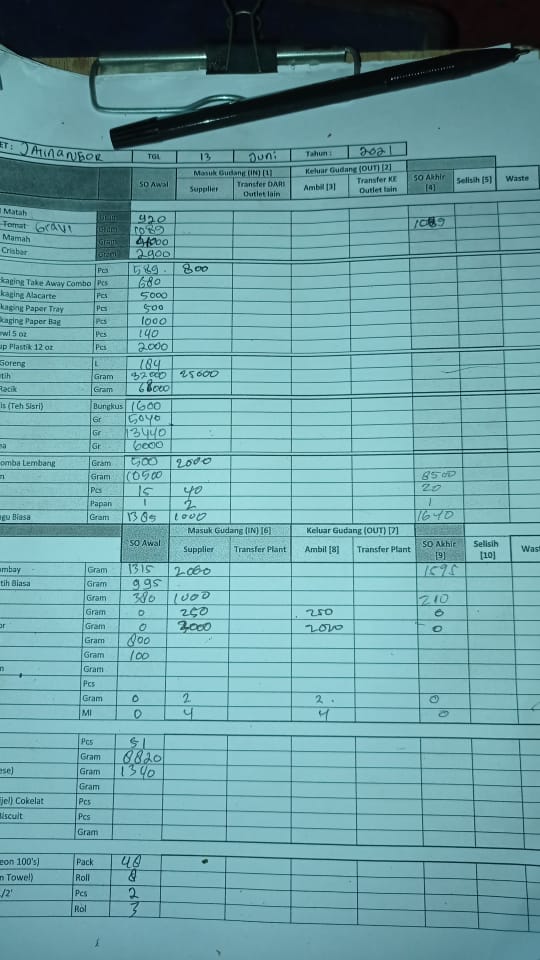 ET : JATINANGOR TGL 13 Juni Tahun : 2021
SO Awal Masuk Gudang (IN) [1] Keluar Gudang (OUT) [2] SO Akhir [4] Selisih [5] Waste
Supplier Transfer DARI Outlet lain Ambil [3] Transfer KE Outlet lain
Matah Gram 920
Tomat Gravi Gram 1089 1089
Mamah Gram
Crisbar Gram 2900
Pcs 589 800
kaging Take Away Combo Pcs 680
kaging Alacarte Pcs 5000
kaging Paper Tray Pcs 500
kaging Paper Bag Pcs 1000
wl 5 oz Pcs 140
up Plastik 12 oz Pcs 2000
Goreng L 184
tih Gram 32000 25000
Racik Gram 68000
is (Teh Sisri) Bungkus 1600
Gr 5040
Gr 13440
a Gr 6000
omba Lembang Gram 500 2000
n Gram 10500 8500
Pcs 15 40 20
Papan 1 2 1
gu Biasa Gram 1385 1000 1640
SO Awal Masuk Gudang (IN) [6] Keluar Gudang (OUT) [7] SO Akhir [9] Selisih [10] Wast
Supplier Transfer Plant Ambil [8] Transfer Plant
mbay Gram 1315 2000 1595
tih Biasa Gram 995
Gram 380 1000 210
Gram 0 250 250 0
or Gram 0 2000 2000 0
Gram 800
Gram 100
n Gram
Pcs
Gram 0 2 2 0
Ml 0 4 4 0
Pcs 51
Gram 8820
ese) Gram 1340
Gram
ijel) Cokelat Pcs
Biscuit Pcs
Gram
eon 100's) Pack 48
n Towel) Roll 8
/2' Pcs 2
Rol 3